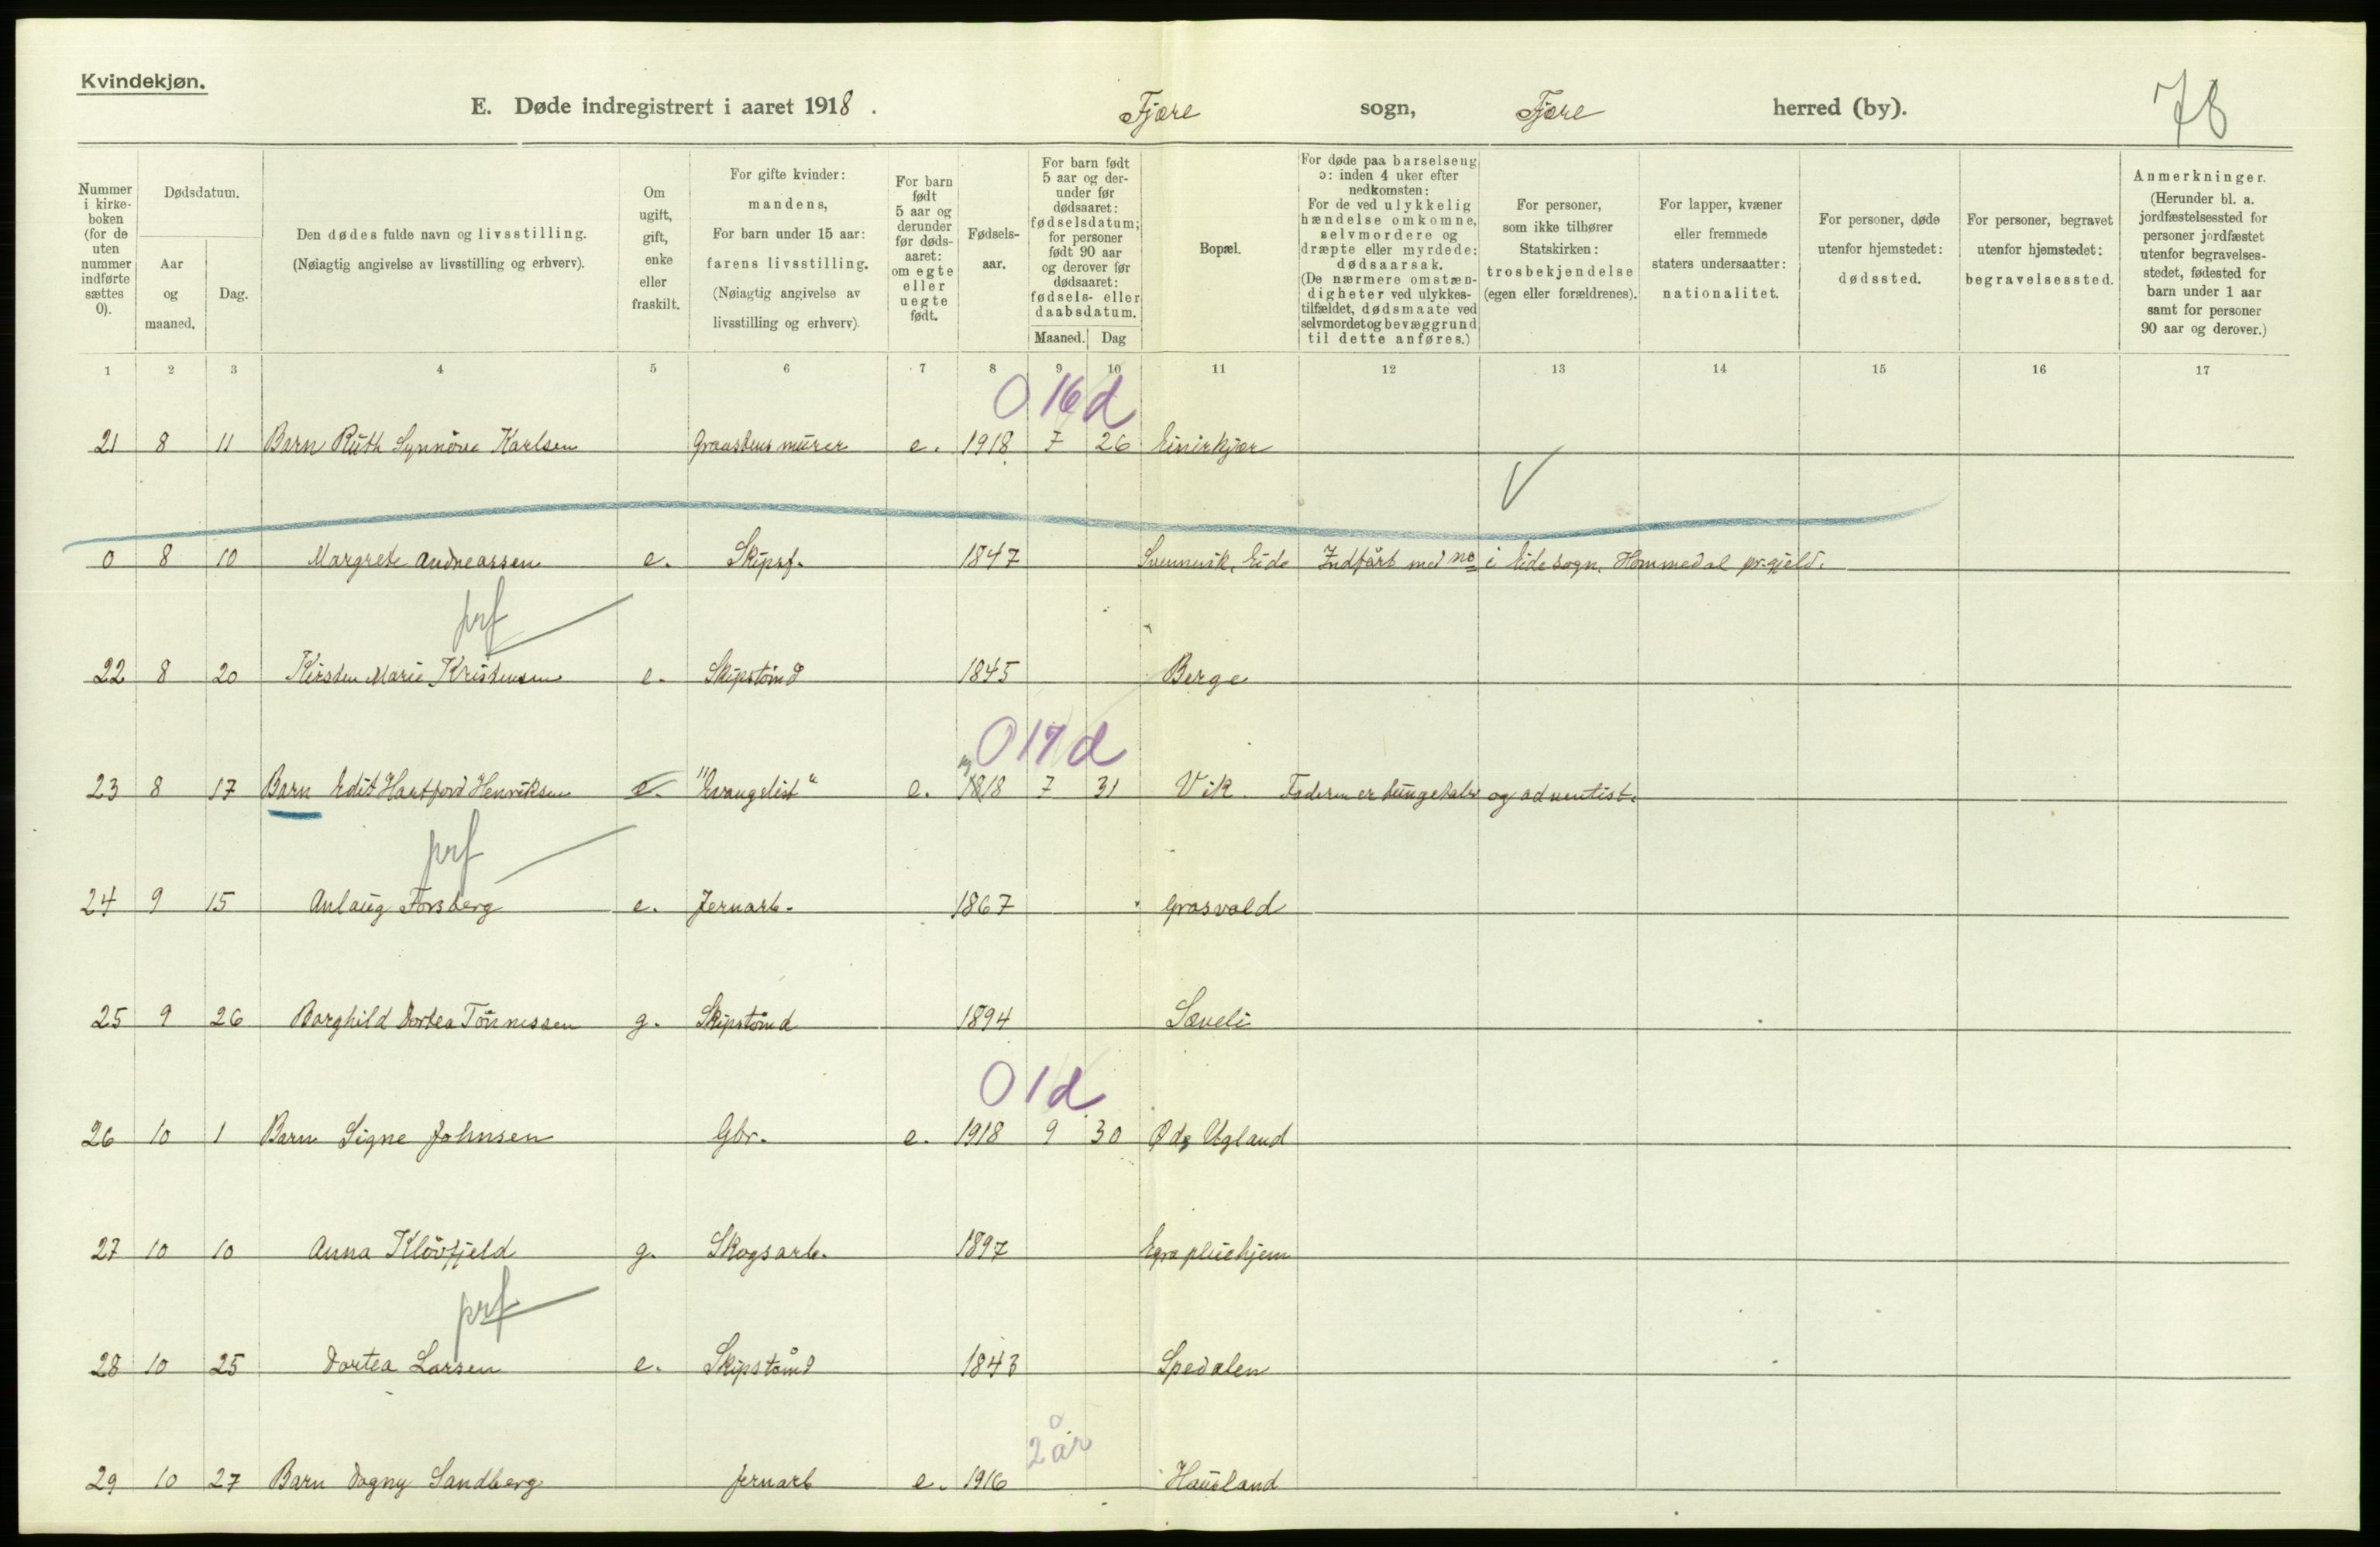 Kvindekjøn.
E. Døde indregistrert i aaret 1918. Fjære sogn, Fjære herred (by). 78
Nummer i kirkeboken (for de uten nummer indførte sættes 0).
Dødsdatum.
Aar og maaned.
Dag.
Den dødes fulde navn og livsstilling.
(Nøiagtig angivelse av livsstilling og erhverv).
Om ugift, gift, enke eller fraskilt.
For gifte kvinder: mandens,
For barn under 15 aar: farens livsstilling.
(Nøiagtig angivelse av livsstilling og erhverv).
For barn født 5 aar og derunder før dødsaaret: om egte eller uegte født.
Fødselsaar.
For barn født 5 aar og derunder før dødsaaret: fødselsdatum; for personer født 90 aar og derover før dødsaaret: fødsels- eller daabsdatum.
Maaned. Dag
Bopæl.
For døde paa barselseng ɔ: inden 4 uker efter nedkomsten:
For de ved ulykkelig hændelse omkomne, selvmordere og dræpte eller myrdede: dødsaarsak.
(De nærmere omstændigheter ved ulykkestilfældet, dødsmaate ved selvmordet og bevæggrund til dette anføres.)
For personer, som ikke tilhører Statskirken: trosbekjendelse (egen eller forældrenes).
For lapper, kvæner eller fremmede staters undersaatter: nationalitet.
For personer, døde utenfor hjemstedet: dødssted.
For personer, begravet utenfor hjemstedet: begravelsessted.
Anmerkninger.
(Herunder bl. a. jordfæstelsessted for personer jordfæstet utenfor begravelsesstedet, fødested for barn under 1 aar samt for personer 90 aar og derover.)
1 2 3 4 5 6 7 8 9 10 11 12 13 14 15 16 17
0 16 d
21 8 11 Barn Ruth Synnöve Karlsen Graastensmurer e. 1918 7 26 Einirkjær
V
0 8 10 Margrete Andreassen e. Skipsf. 1847 Svennevik, Eide Indført med no i Eide sogn. Hommedal pr.gjeld.
prf
22 8 20 Kirsten Marie Kristensen e. Skipstømd 1845 Berge
0 17 d
23 8 17 Barn Edit Hartford Henriksen e. "Evangelist" e. 1818 7 31 Vik. Faderen er tungetaler og adventist.
prf
24 9 15 Anlaug Forsberg e. Jernarb. 1867 Grosvold
25 9 26 Borghild Dortea Tönnessen g. Skipstömd 1894 Sæveli
0 1 d
26 10 1 Barn Signe Johnsen Gbr. e. 1918 9 30 Øds Ugland
27 10 10 Anna Klövfjeld g. Skogsarb. 1897 Egra pleiehjem
prf
28 10 25 Dortea Larsen e. Skipstömd 1843 Spedalen
2 år
29 10 27 Barn Dagny Sandberg Jernarb e. 1916 Hausland